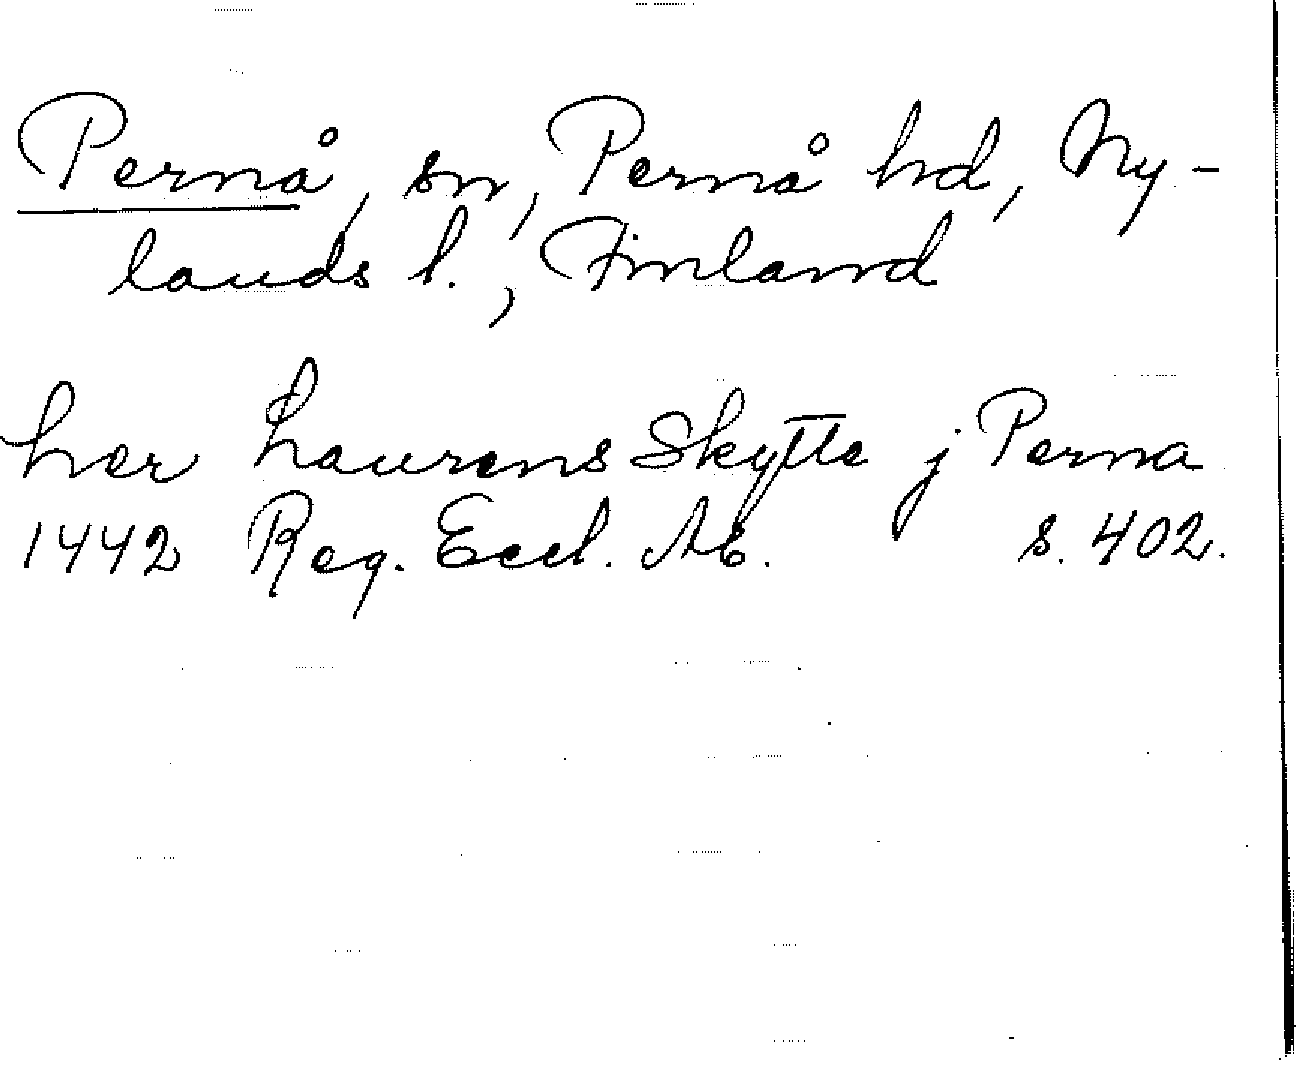 Pernå, sn, Pernå hd, Ny-
lands l., Finland
her Laurens Skytte j Perna
1442 Reg. Eccl. Ab. s. 402.